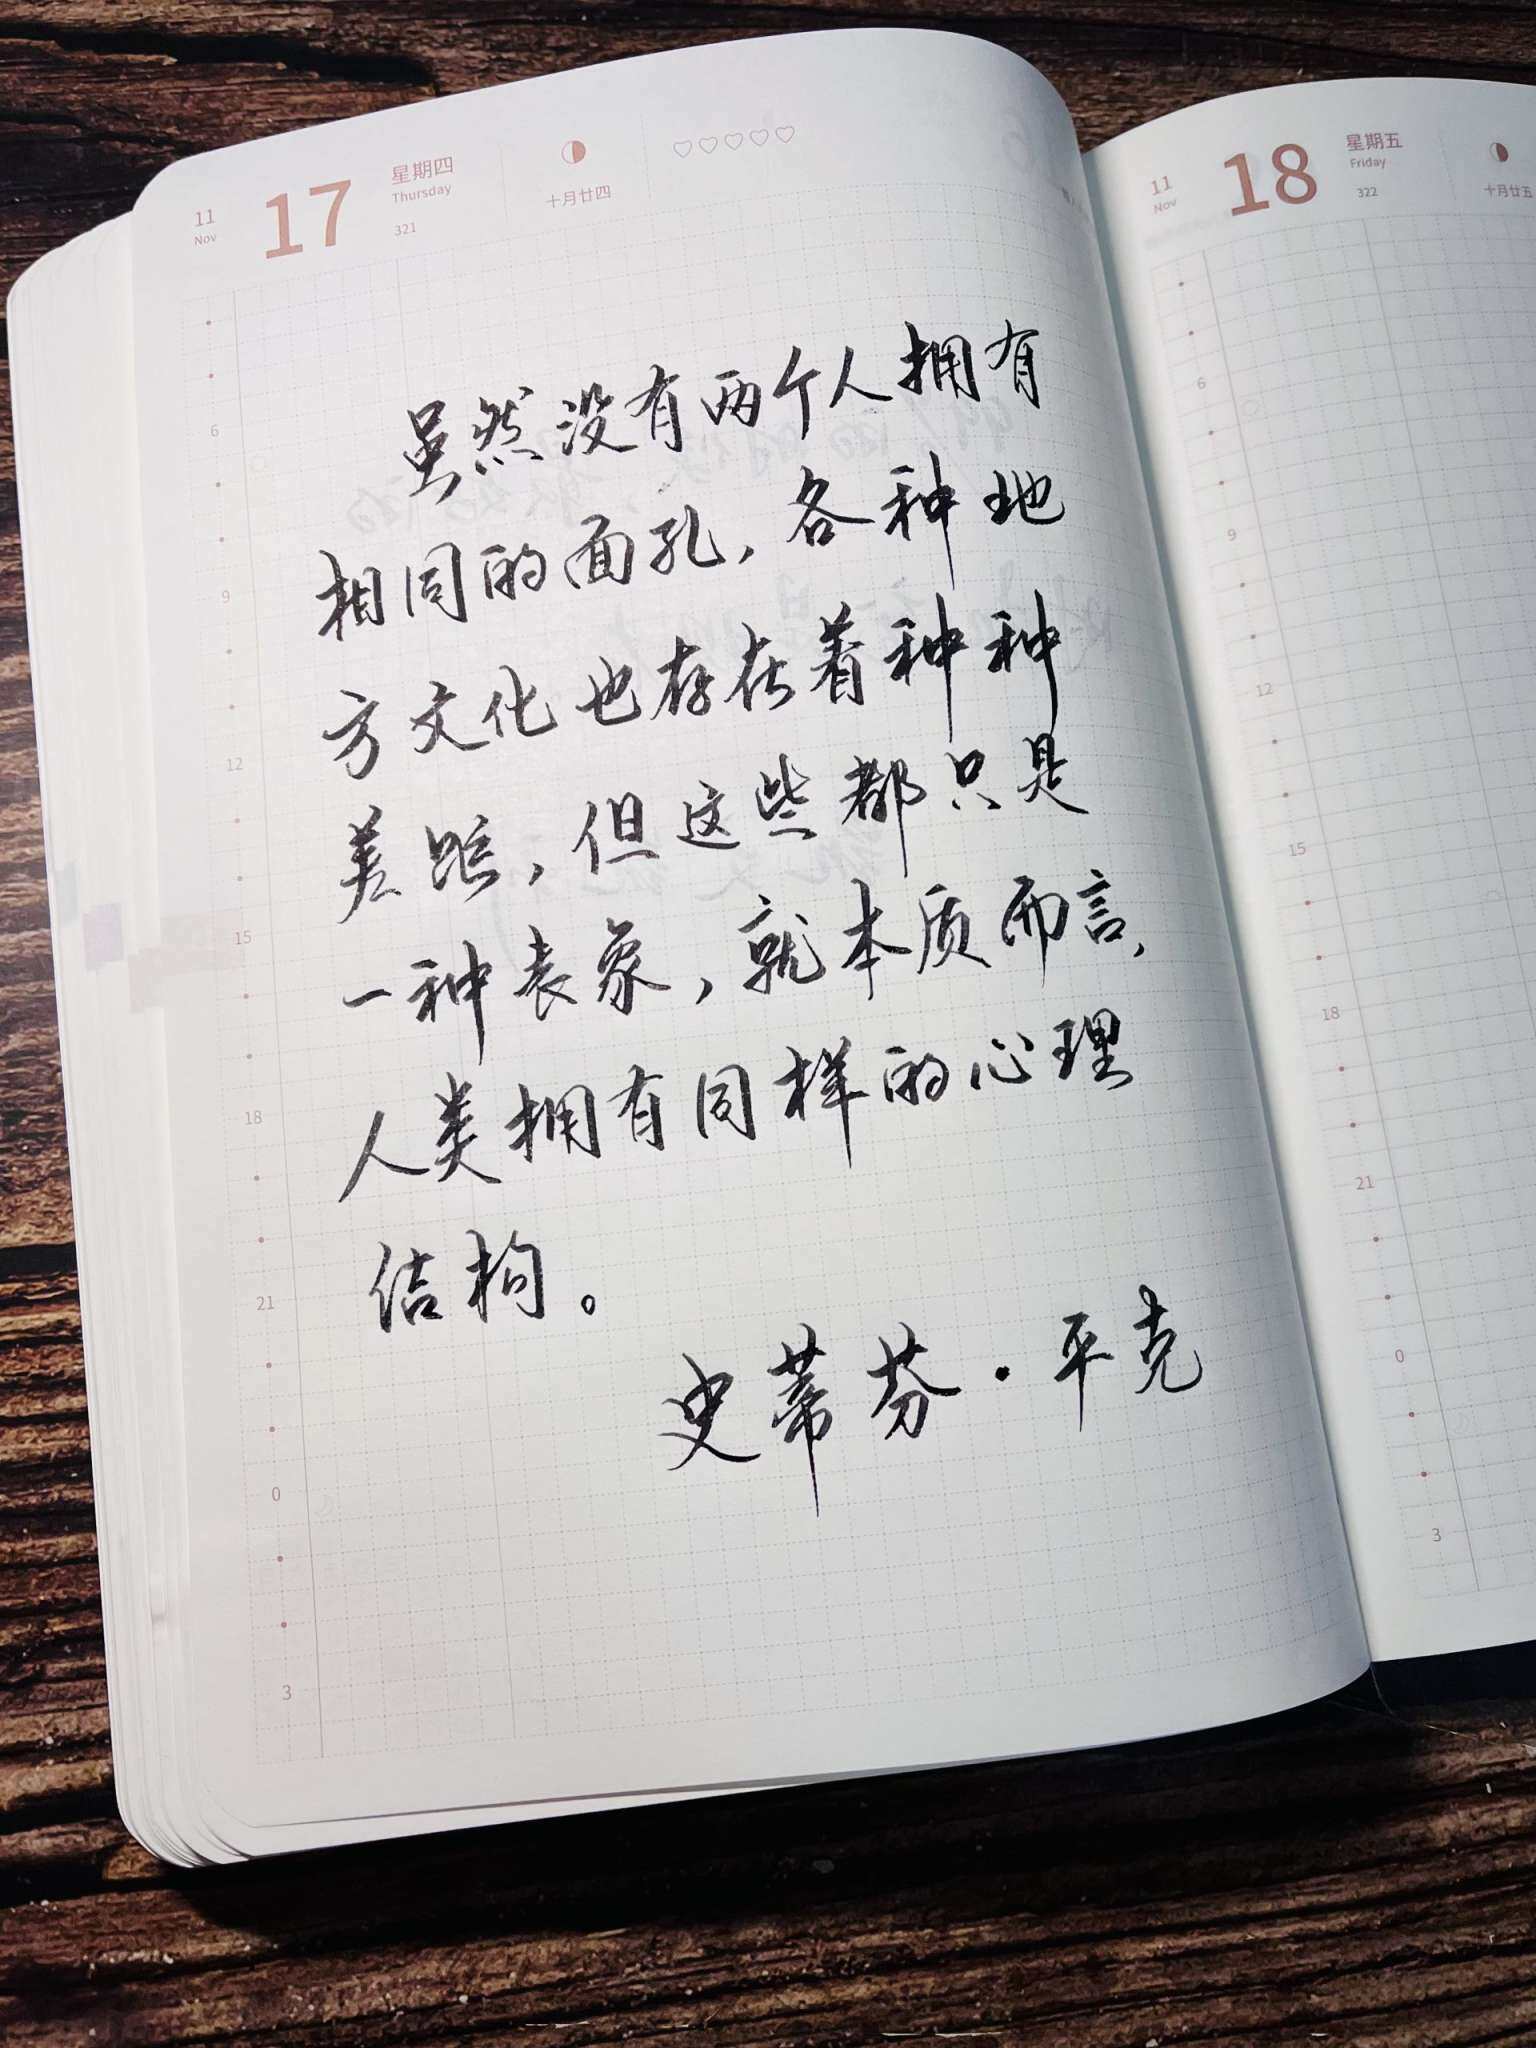 11
Nov
17
星期四
Thursday
321
十月廿四
虽然没有两个人拥有
相同的面孔，各种地
方文化也存在着种种
差距，但这些都只是
一种表象，就本质而言，
人类拥有同样的心理
结构。
史蒂芬·平克
6
9
12
15
18
21
0
3
11
Nov
18
星期五
Friday
322
十月廿五
6
9
12
15
18
21
0
3